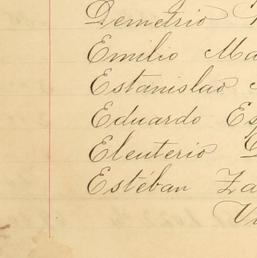 Demetrio
Emilio Ma
Estanislao
Eduardo Es
Eleuterio
Estéban Za
Vi